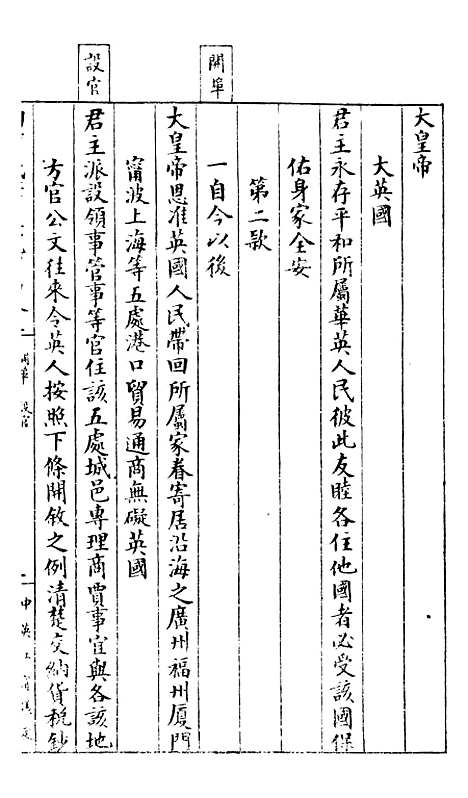 大皇帝
大英國
君主永存平和所屬華英人民彼此友睦各住他國者必受該國保
佑身家全安
第二款
開埠
一自今以後
大皇帝恩准英國人民帶回所屬家眷寄居沿海之廣州福州厦門
甯波上海等五處港口貿易通商無礙英國
設官
君主派設領事管事等官住該五處城邑專理商賈事宜與各該地
方官公文往來令英人按照下條開敘之例清楚交納貨稅鈔
開埠 設官
中英